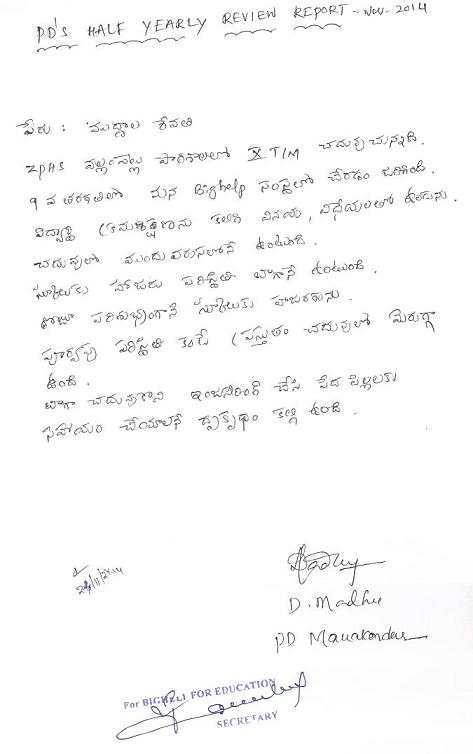 PD'S HALF YEARLY REVIEW REPORT - Nov - 2014
పేరు : ముద్దాల రేవతి
ZPHS పాఠశాలలో X T/M చదువుచున్నది.
9 వ తరగతిలో మన Bighelp సంస్థలో చేరడం జరిగింది.
విద్యార్థి క్రమశిక్షణను కలిగి వినయ, విధేయలతో ఉండును.
చదువులో ముందు వరుసలోనే ఉంటుంది.
స్కూలుకు హాజరు పరిస్థితి బాగానే ఉంటుంది.
రోజూ పరిశుభ్రంగానే స్కూలుకు హాజరగును.
పూర్వపు పరిస్థితి కంటే ప్రస్తుతం చదువులో మెరుగ్గా
ఉంది.
బాగా చదువుకొని ఇంజనీరింగ్ చేసి పేద పిల్లలకు
సహాయం చేయాలనే దృక్పథం కల్గి ఉంది.
D. Madhu
PD
For BIGHELP FOR EDUCATION
SECRETARY